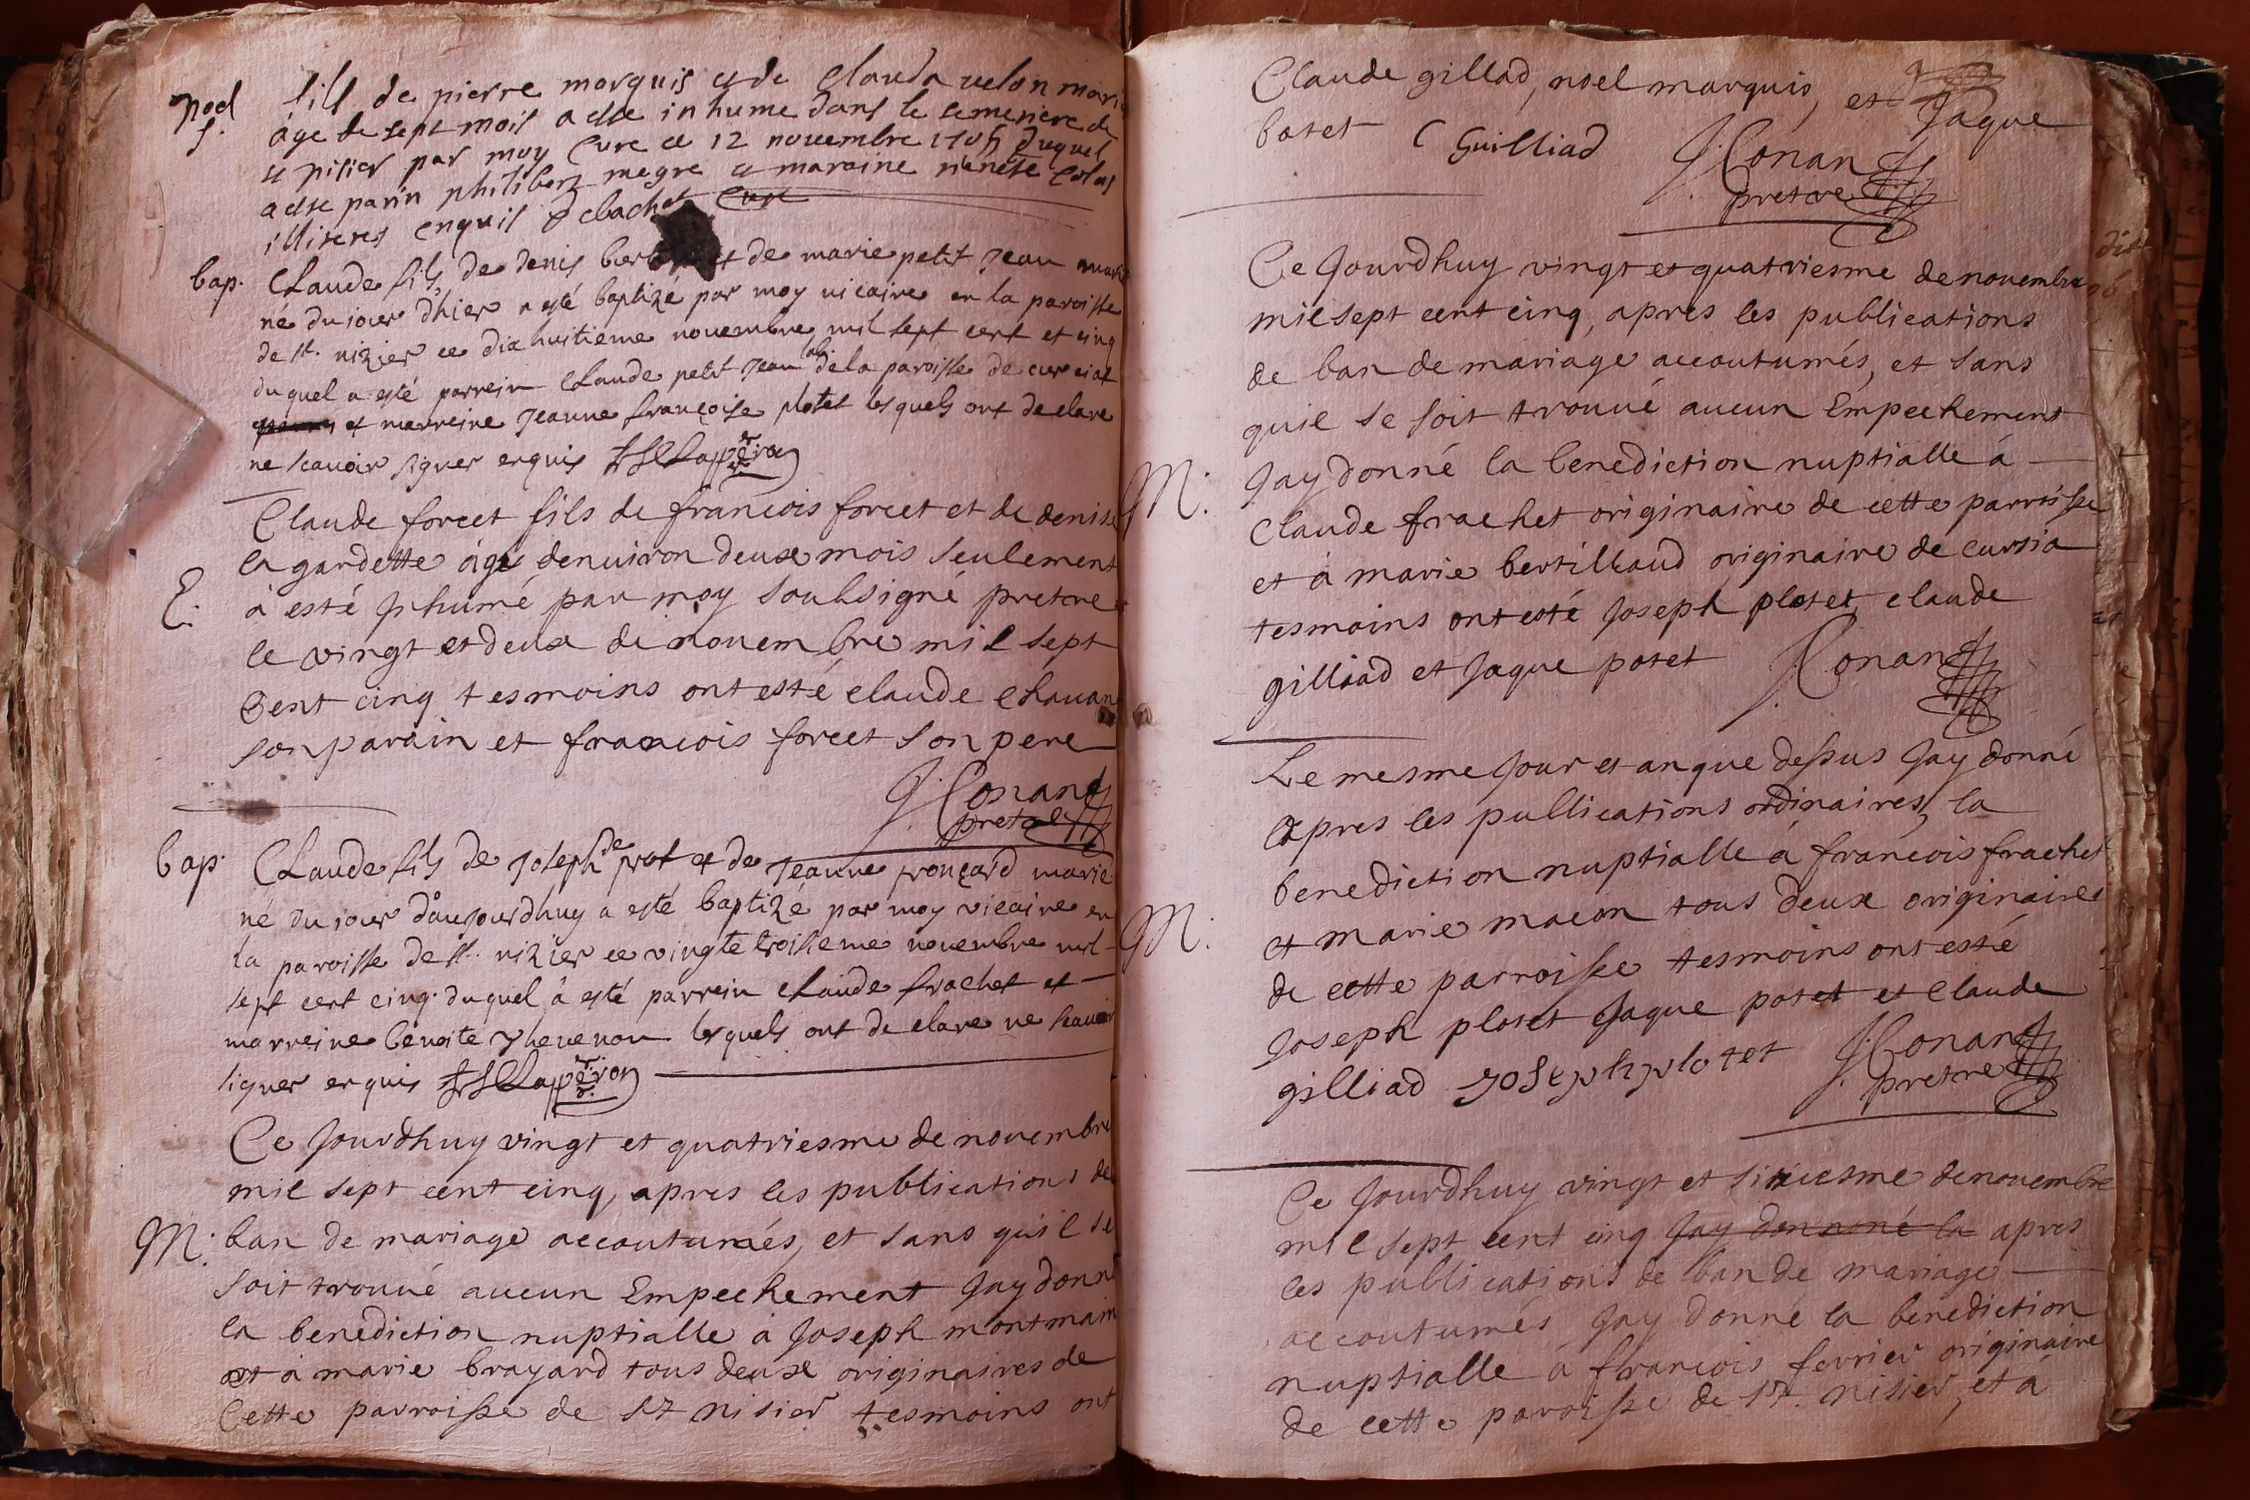 noel fils de pierre marquis et de Clauda velon marié
S. age de sept mois a este inhume dans le semeriere de
st nisier par moy Cure ce 12 novembre 1705 duquel
a este parin philibert megre et maraine
illiteres enquis Delachat Curé
bap. Claude fils de denis et de marie petit Jean marié
né du jour d'hier a esté baptizé par moy vicaire en la paroisse
de st. nizier ce dix huitieme novembre mil sept cent et cinq
duquel a esté parrein Claude petit Jean de la paroisse de curciat
et marreine Jeanne françoise plotet lesquels ont declare
ne scavoir signer enquis
Claude forcet fils de francois forcet et de denise
la gardette agé denuiron deux mois seulement
E. à esté Jnhumé par moy soubsigné pretre
le vingt et deux de nouembre mil sept
Cent cinq tesmoins ont esté claude chauan
son parain et francois forcet son pere
J. Conand
pretre
bap. Claude fils de Joseph de prost et de Jeanne ronçard marié
né du jour d'aujourdhuy a esté baptizé par moy vicaire en
la paroisse de st. nizier ce vingte troisieme novembre mil
sept cent cinq. duquel à esté parrein Claude frachet et
marreine benoite Thevenon lesquels ont declare ne scavoir
signer enquis
Ce Jourdhuy vingt et quatriesme de nouembre
mil sept cent cinq, apres les publications de
M. ban de mariage accoutumés, et sans qu'il se
soit trouué aucun Empechement Jay donné
la benediction nuptialle à Joseph montmain
et à marie brayard tous deux originaires de
Cette parroisse de St nisier tesmoins ont
Claude gillad, noel marquis, et Jaque
potet C Guilliad J. Conand
pretre
Ce Jourdhuy vingt et quatriesme de nouembre
mil sept cent cinq, apres les publications
de ban de mariage accoutumés, et sans
quil se soit trouué aucun Empechement
M. Jay donné la benediction nuptialle à
Claude frachet originaire de cette parroisse
et à marie bertilliaud originaire de cursia
tesmoins ont esté Joseph plotet, claude
gilliad et Jaque potet J. Conand
Le mesme Jour et an que dessus Jay donné
apres les publications ordinaires, la
benediction nuptialle à francois frachet
M. et marie macon tous deux originaires
de cette parroisse tesmoins ont esté
Joseph plotet Jaque potet et Claude
gilliad Joseph plotet J. Conand
pretre
Ce Jourdhuy vingt et sixiesme de nouembre
mil sept cent cinq Jay donné la apres
les publications de ban de mariage
accoutumés Jay donné la benediction
nuptialle à francois ferrier originaire
de cette paroisse de St. nisier, et à